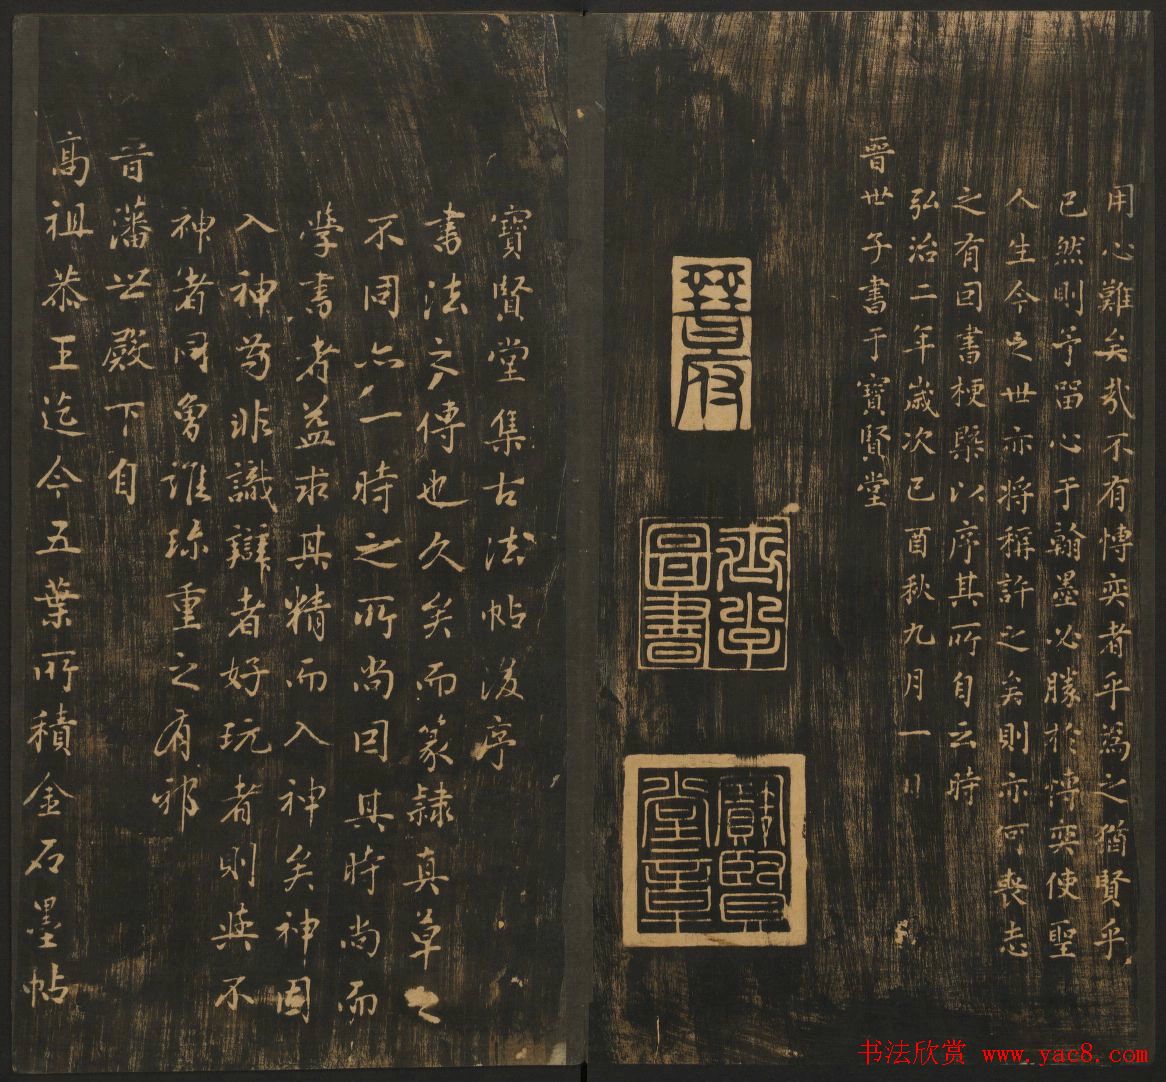 用心難矣哉不有愽奕者乎為之猶賢乎
已然則予畱心于翰墨必勝於愽奕使聖
人生今之世亦将稱許之矣則亦何喪志
之有因書梗槩以序其所自云時
弘治二年歲次己酉秋九月一日
晉世子書于寶賢堂
晉府
世子圖書
寶賢堂章
寶賢堂集古法帖後序
書法之傳也久矣而篆隷真草之
不同亦一時之所尚因其時尚而
學書者益求其精而入神矣神固
入神苟非識辯者好玩者則與不
神者同曷誰珍重之有邪
晉藩世殿下自
髙祖恭王迄今五葉所積金石墨帖
书法欣赏 www.yac8.com